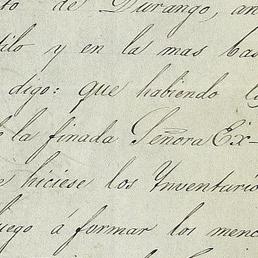 to de Durango, an
tilo y en la mas bas
digo: que habiendo
la finada Señora Ex-
hiciese los Inventario
luego á formar los menc